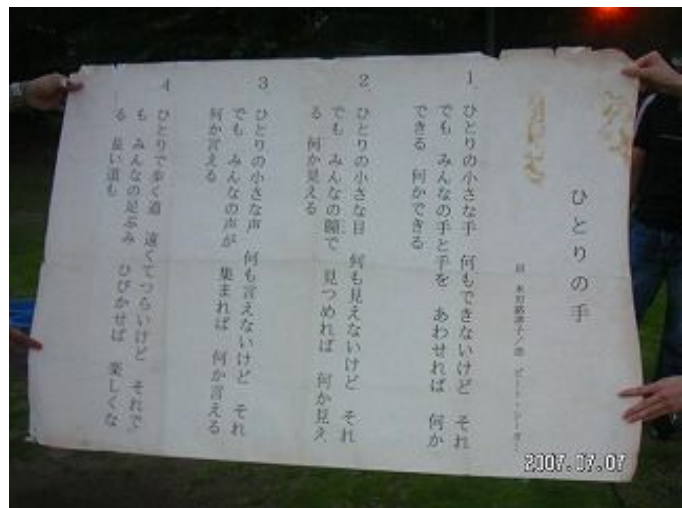 ひとりの手
詞 本田路津子/曲 ピート・シーガー
1. ひとりの小さな手 何もできないけど それ
でも みんなの手と手を あわせれば 何か
できる 何かできる
2. ひとりの小さな目 何も見えないけど それ
でも みんなの瞳で 見つめれば 何か見え
る 何か見える
3. ひとりの小さな声 何も言えないけど それ
でも みんなの声が 集まれば 何か言える
何か言える
4 ひとりで歩く道 遠くてつらいけど それで
も みんなの足ぶみ ひびかせば 楽しくな
る 長い道も
2007.07.07